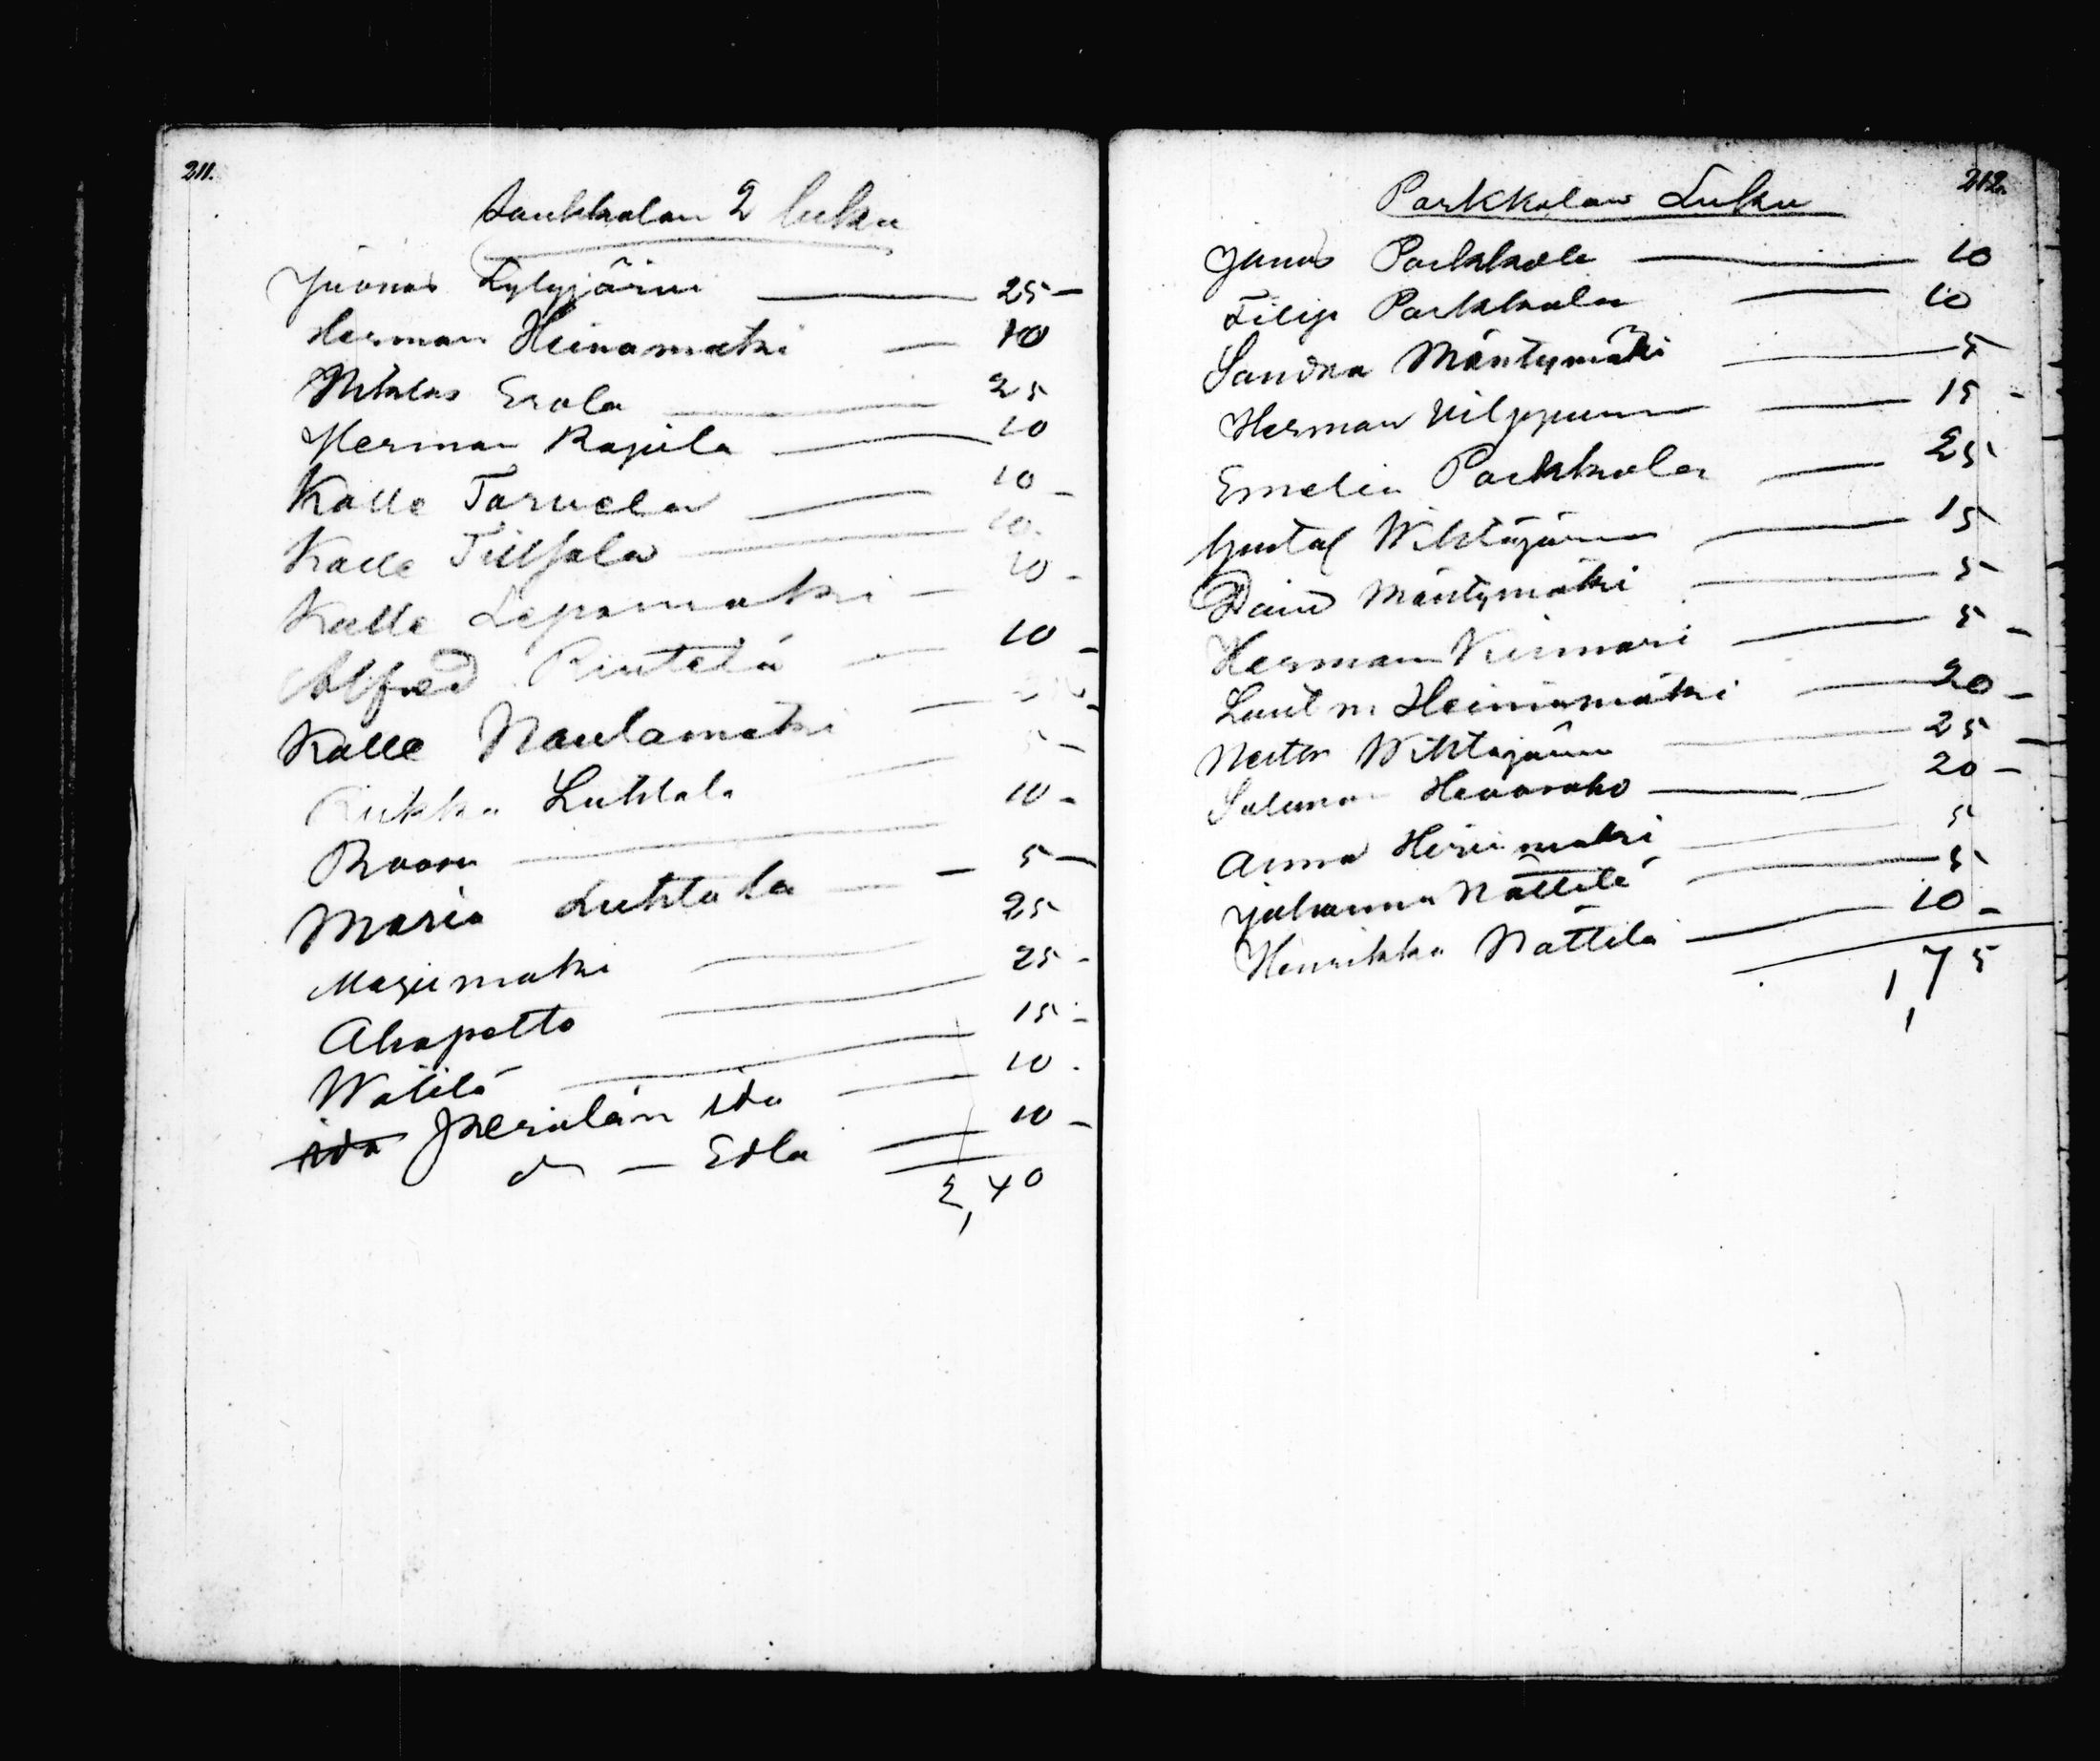 211.
Saukkolan 2 luku
Juonas Lylyjärvi — 25 —
Herman Heinamaki — 10
Niklas Erola — 25
Herman Rajala — 10
Kalle Tarvela — 10 —
Kalle Tilljala — 10.
Kalle Lepamaki — 10 -
Alfred Rintelä — 10 -
Kalle Naulamaki —
Luhtala — 5 —
10 -
Maria Luhtala — 5 —
Marjumaki — 25
Ahopelto — 25 -
Wälilä — 15 -
ida Perälän ida — 10.
do — Edla — 10 -
2,40
212.
Parkkolan Luku
Junas Parkkola — 10
Filip Parkkola — 10
Sandra Mäntymäki — 5
Herman Vilppunen — 15 -
Emelia Parkkola — 25
Gustaf Wihtäjärvi — 15
David Mäntymäki — 5
Herman Kiimari — 5 -
Heiniemäki — 20 -
Nestor Wihtajärvi — 25 —
Salomon Hevosaho — 20 -
Anna Hirvimaki — 5
Juhanna Nättilä — 5
Henrikka Nättilä — 10 -
1,75